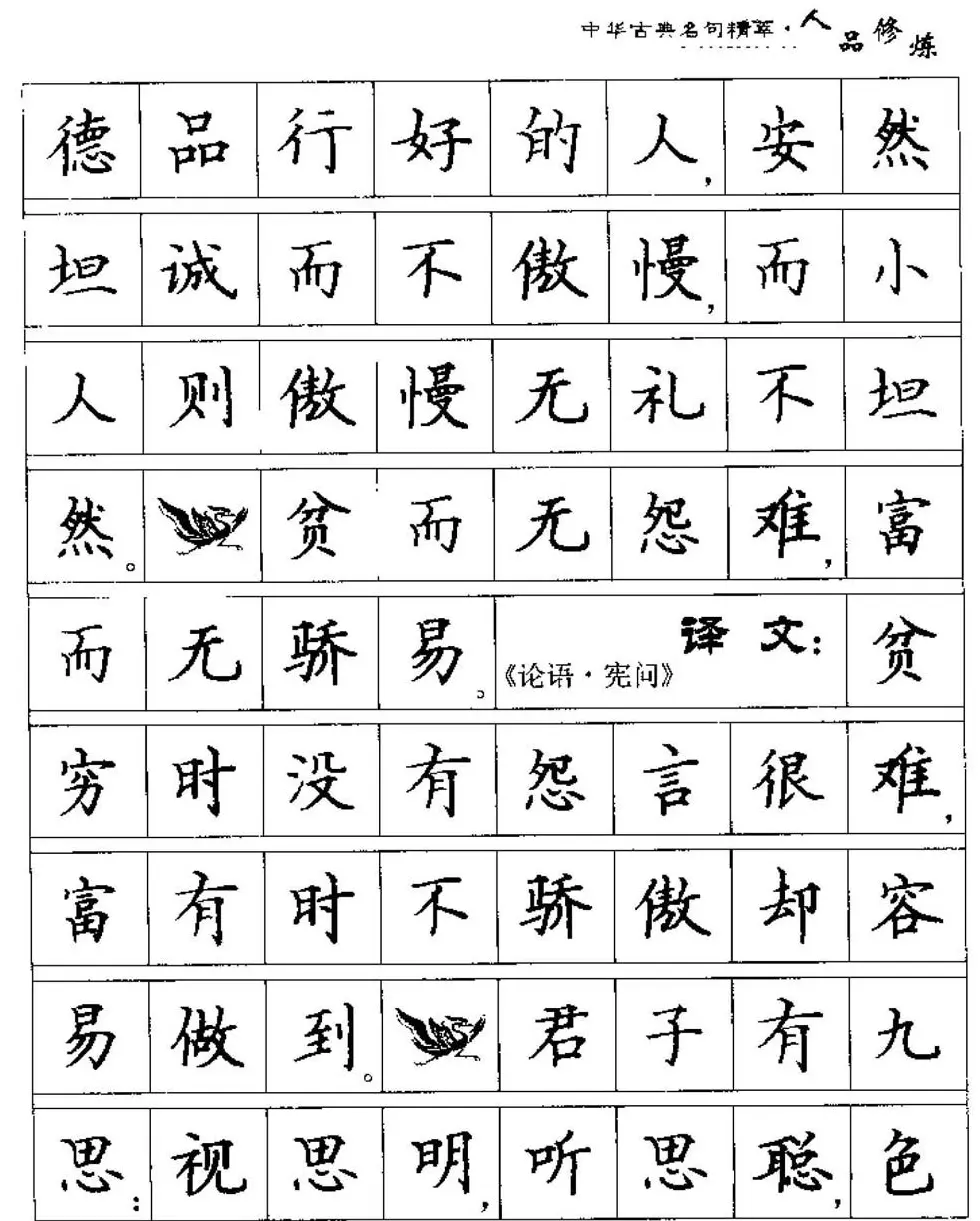 中华古典名句精萃·人品修炼
德品行好的人,安然
坦诚而不傲慢,而小
人则傲慢无礼不坦
然。贫而无怨难,富
而无骄易。《论语·宪问》译文:贫
穷时没有怨言很难,
富有时不骄傲却容
易做到。君子有九
思:视思明,听思聪,色